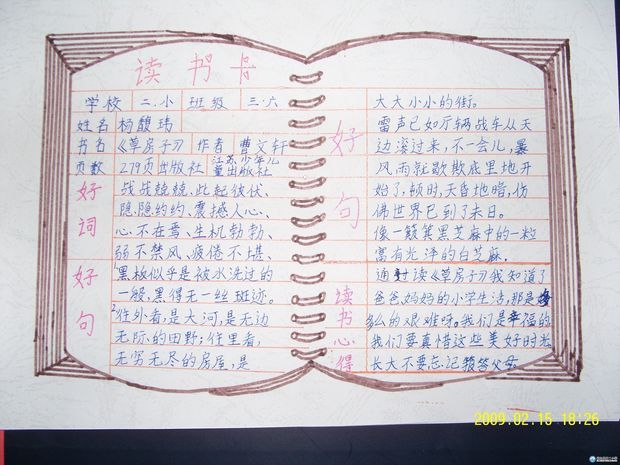 读书卡
学校 二.小 班级 三.六
姓名 杨馥玮
书名 《草房子》 作者 曹文轩
页数 279页 出版社 江苏少年儿童出版社
好词
战战兢兢、此起彼伏、
隐隐约约、震撼人心、
心不在焉、生机勃勃、
弱不禁风、疲倦不堪、
好句
1黑板似乎是被水洗过的
一般,黑得无一丝斑迹。
2往外者,是大河,是无边
无际的田野;往里者,
无穷无尽的房屋,是
好句
大大小小的街。
雷声已如万辆战车从天
边滚过来,不一会儿,暴
风雨就歇欺底里地开
始了,顿时,天昏地暗,仿
佛世界已到了末日。
像一簸箕黑芝麻中的一粒
富有光泽的白芝麻。
读书心得
通过读《草房子》我知道了
爸爸,妈妈的小学生活,那是多
么的艰难呀。我们是幸福的
我们要真惜这些美好时光
长大不要忘记报答父母。
2009.02.15 18:26